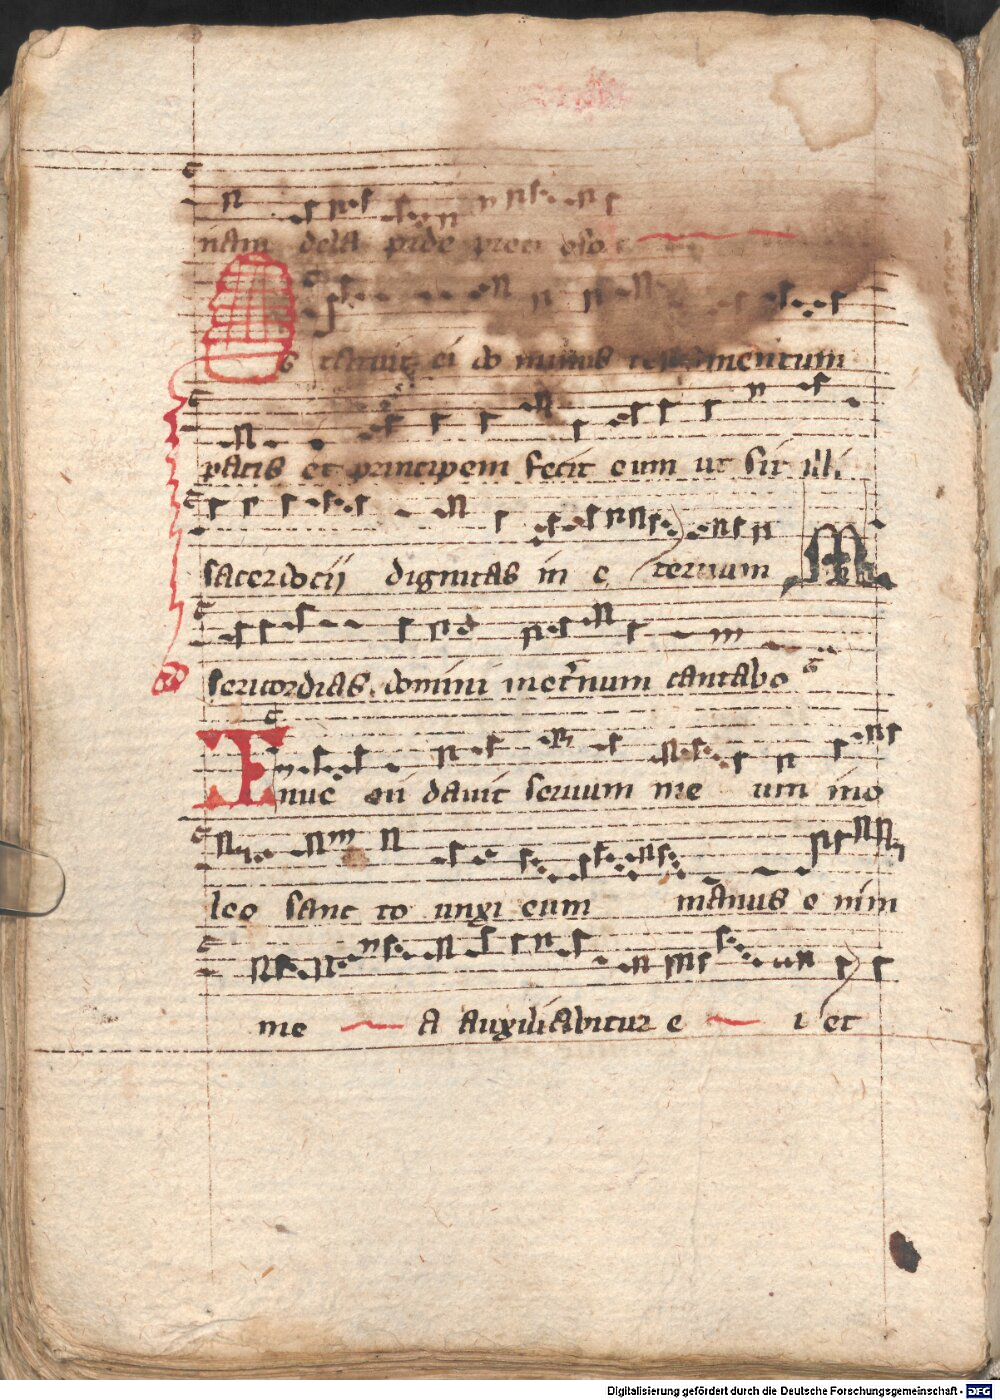 nam dela pide preci oso
S tatuit ei do minus testamentum
pacis et principem fecit eum ut sit illi
sacerdocii dignitas in e ternum Mi
sericordias domini inet'num cantabo
Inue ni dauit seruum me um in o
leo sanc to unxi eum manus e nim
me a auxiliabitur e i et
Digitalisierung gefördert durch die Deutsche Forschungsgemeinschaft - DFG